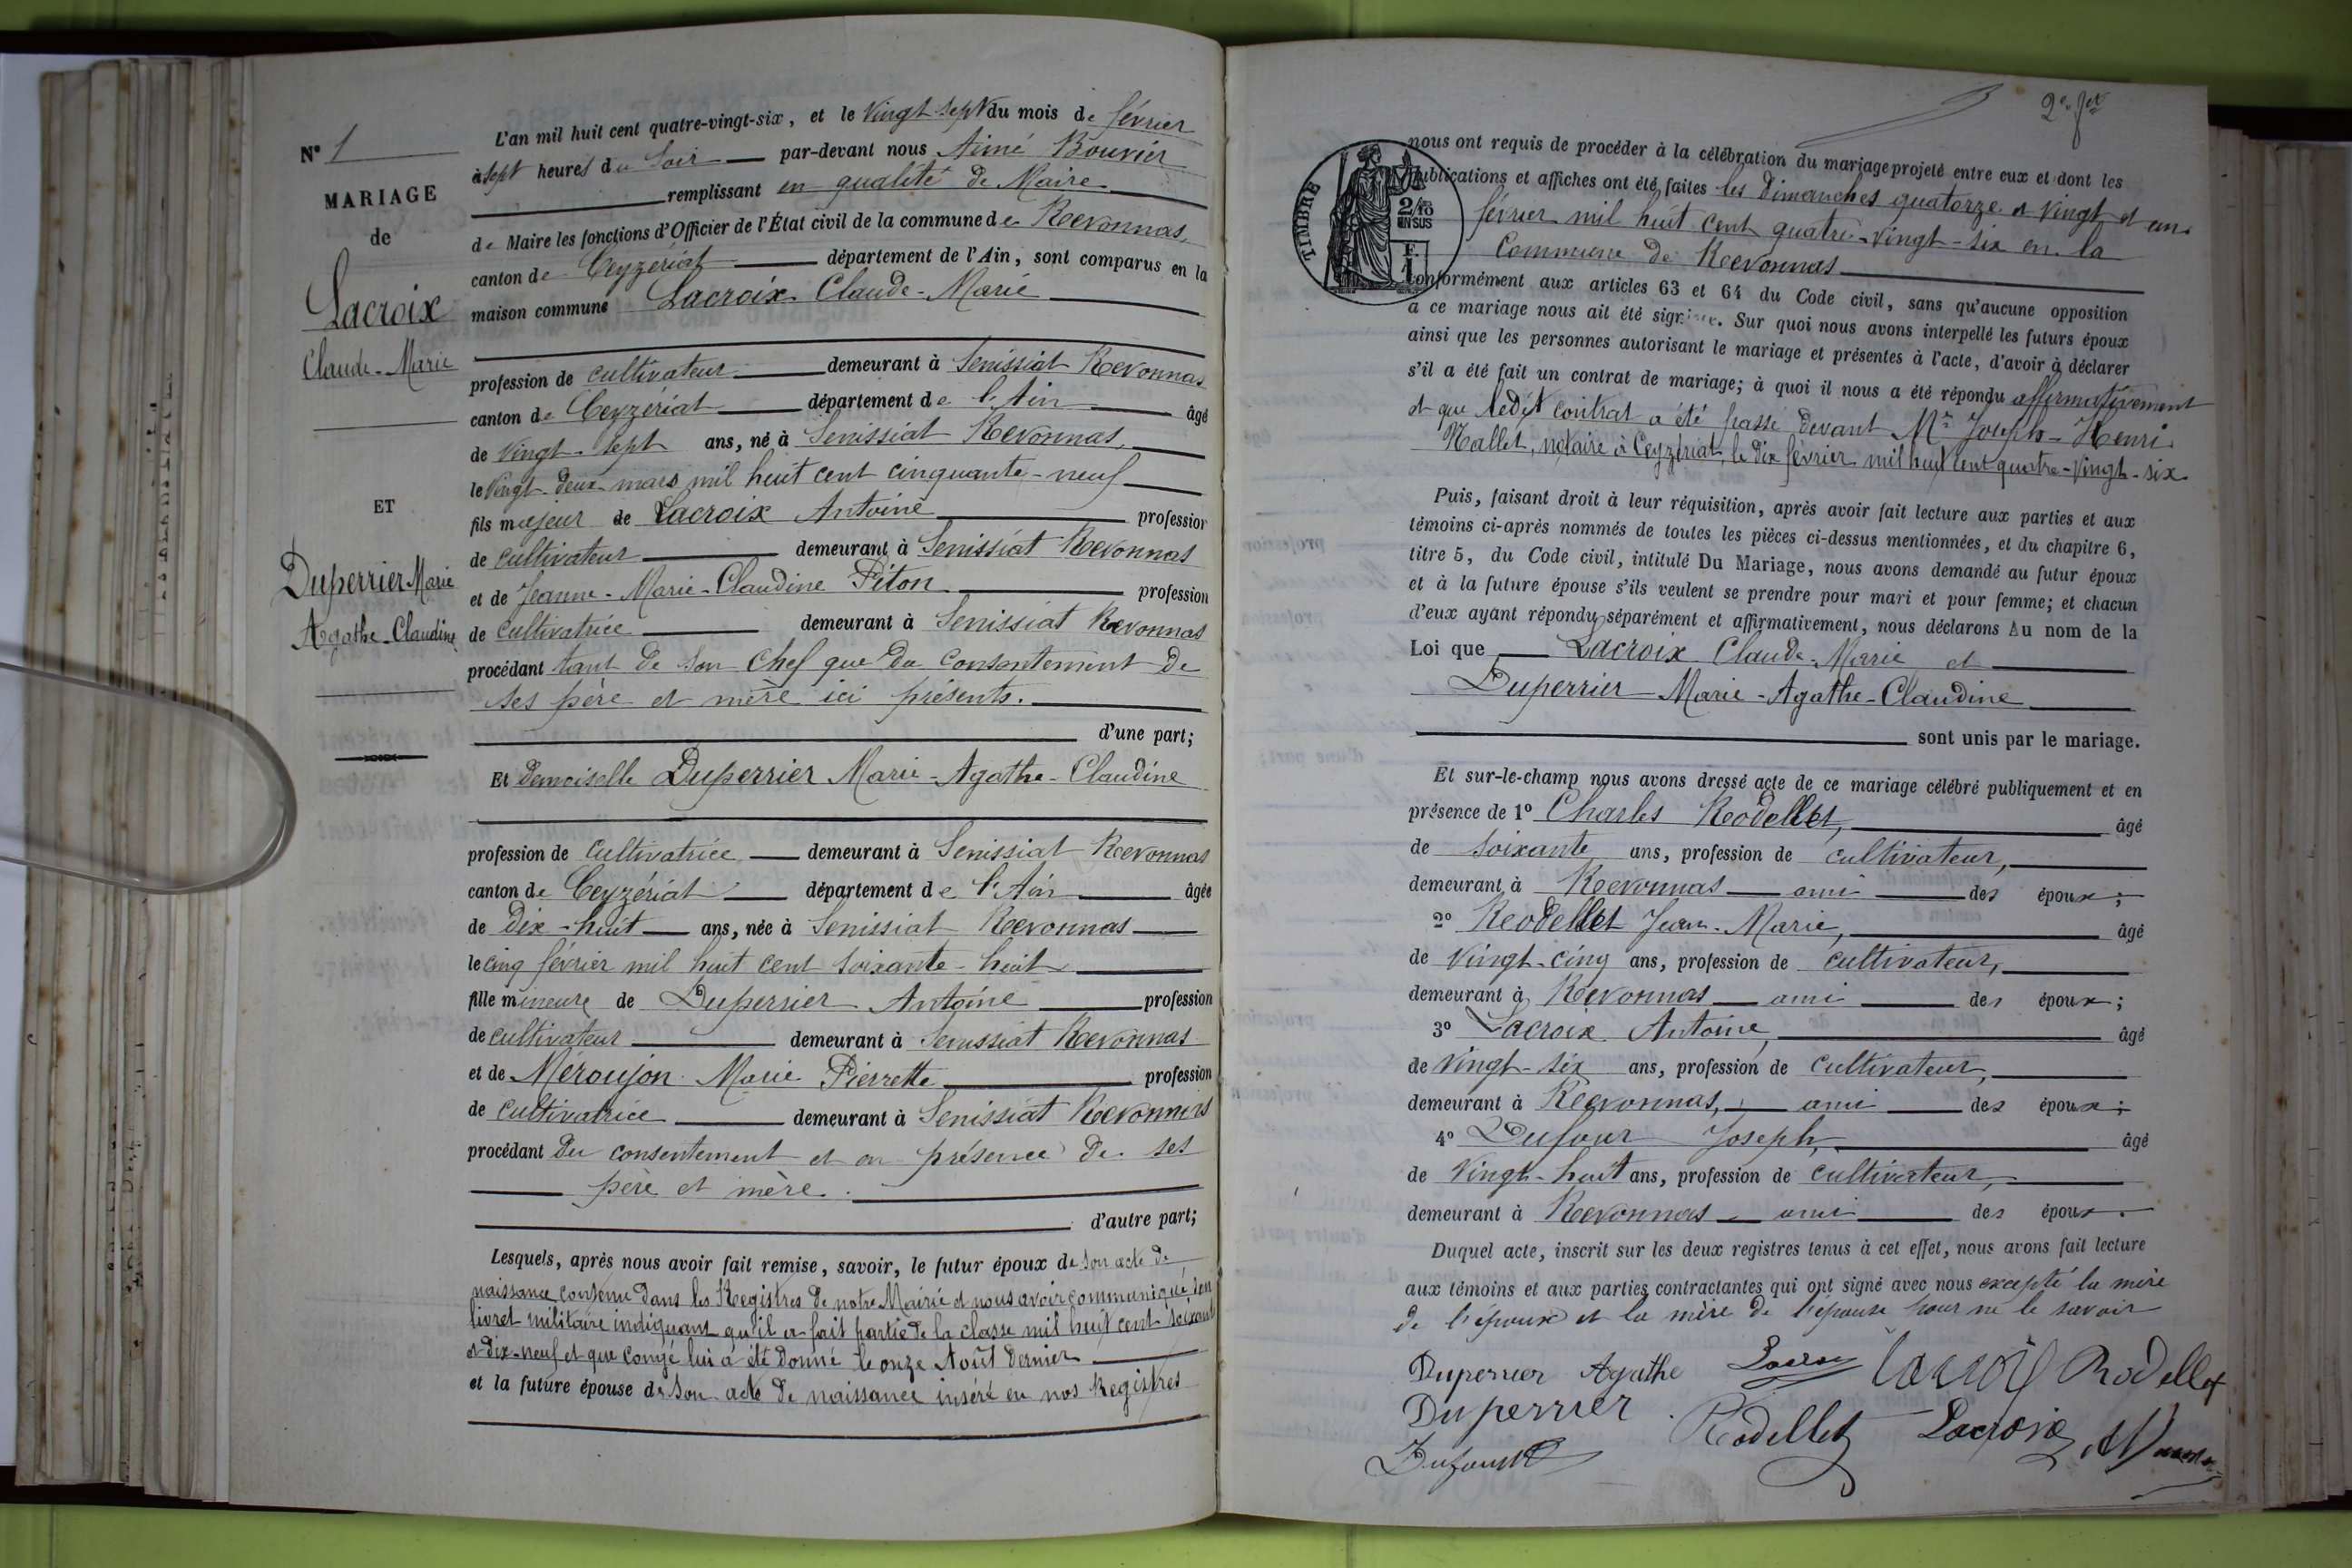 N° 1
MARIAGE
de
Lacroix
Claude-Marie
ET
Duperrier Marie
Agathe-Claudine
L'an mil huit cent quatre-vingt-six, et le vingt-sept du mois de février
à sept heures du soir par-devant nous Aimé Bouvier
remplissant en qualité de Maire
de Maire les fonctions d'Officier de l'État civil de la commune de Revonnas,
canton de Ceyzériat département de l'Ain, sont comparus en la
maison commune Lacroix Claude-Marie
profession de cultivateur demeurant à Senissiat Revonnas
canton de Ceyzériat département de l'Ain âgé
de vingt-sept ans, né à Senissiat Revonnas,
le vingt-deux mars mil huit cent cinquante-neuf
fils majeur de Lacroix Antoine profession
de cultivateur demeurant à Senissiat Revonnas
et de Jeanne-Marie-Claudine Piton profession
de cultivatrice demeurant à Senissiat Revonnas
procédant tant de son chef que du consentement de
ses père et mère ici présents.
d'une part;
Et demoiselle Duperrier Marie-Agathe-Claudine
profession de cultivatrice demeurant à Senissiat Revonnas
canton de Ceyzériat département de l'Ain âgée
de dix-huit ans, née à Senissiat Revonnas
le cinq février mil huit cent soixante-huit
fille mineure de Duperrier Antoine profession
de cultivateur demeurant à Senissiat Revonnas
et de Méroujon Marie Pierrette profession
de cultivatrice demeurant à Senissiat Revonnas
procédant du consentement et en présence de ses
père et mère.
d'autre part;
Lesquels, après nous avoir fait remise, savoir, le futur époux de son acte de
naissance contenu dans les Registres de notre Mairie et nous avoir communiqué son
livret militaire indiquant qu'il a fait partie de la classe mil huit cent soixante
et dix-neuf et que congé lui a été donné le onze Août dernier
et la future épouse de son acte de naissance inséré en nos Registres
2e. fet
TIMBRE
2/10
EN SUS
nous ont requis de procéder à la célébration du mariage projeté entre eux et dont les
publications et affiches ont été faites les dimanches quatorze et vingt et un
février mil huit cent quatre-vingt-six en la
Commune de Revonnas
conformément aux articles 63 et 64 du Code civil, sans qu'aucune opposition
à ce mariage nous ait été signifiée. Sur quoi nous avons interpellé les futurs époux
ainsi que les personnes autorisant le mariage et présentes à l'acte, d'avoir à déclarer
s'il a été fait un contrat de mariage; à quoi il nous a été répondu affirmativement
et que ledit contrat a été passé devant Me Joseph-Henri
Mallet, notaire à Ceyzériat, le dix février mil huit cent quatre-vingt-six
Puis, faisant droit à leur réquisition, après avoir fait lecture aux parties et aux
témoins ci-après nommés de toutes les pièces ci-dessus mentionnées, et du chapitre 6,
titre 5, du Code civil, intitulé Du Mariage, nous avons demandé au futur époux
et à la future épouse s'ils veulent se prendre pour mari et pour femme; et chacun
d'eux ayant répondu séparément et affirmativement, nous déclarons Au nom de la
Loi que Lacroix Claude-Marie et
Duperrier Marie-Agathe-Claudine
sont unis par le mariage.
Et sur-le-champ nous avons dressé acte de ce mariage célébré publiquement et en
présence de 1° Charles Rodellet, âgé
de soixante ans, profession de cultivateur,
demeurant à Revonnas ami des époux;
2° Rodellet Jean-Marie, âgé
de vingt-cinq ans, profession de cultivateur,
demeurant à Revonnas ami des époux;
3° Lacroix Antoine, âgé
de vingt-six ans, profession de cultivateur,
demeurant à Revonnas, ami des époux;
4° Dufour Joseph, âgé
de vingt-huit ans, profession de cultivateur,
demeurant à Revonnas ami des époux.
Duquel acte, inscrit sur les deux registres tenus à cet effet, nous avons fait lecture
aux témoins et aux parties contractantes qui ont signé avec nous excepté la mère
de l'époux et la mère de l'épouse pour ne le savoir
Duperrier Agathe Lacroix Rodellet
Duperrier Rodellet Lacroix
Dufour